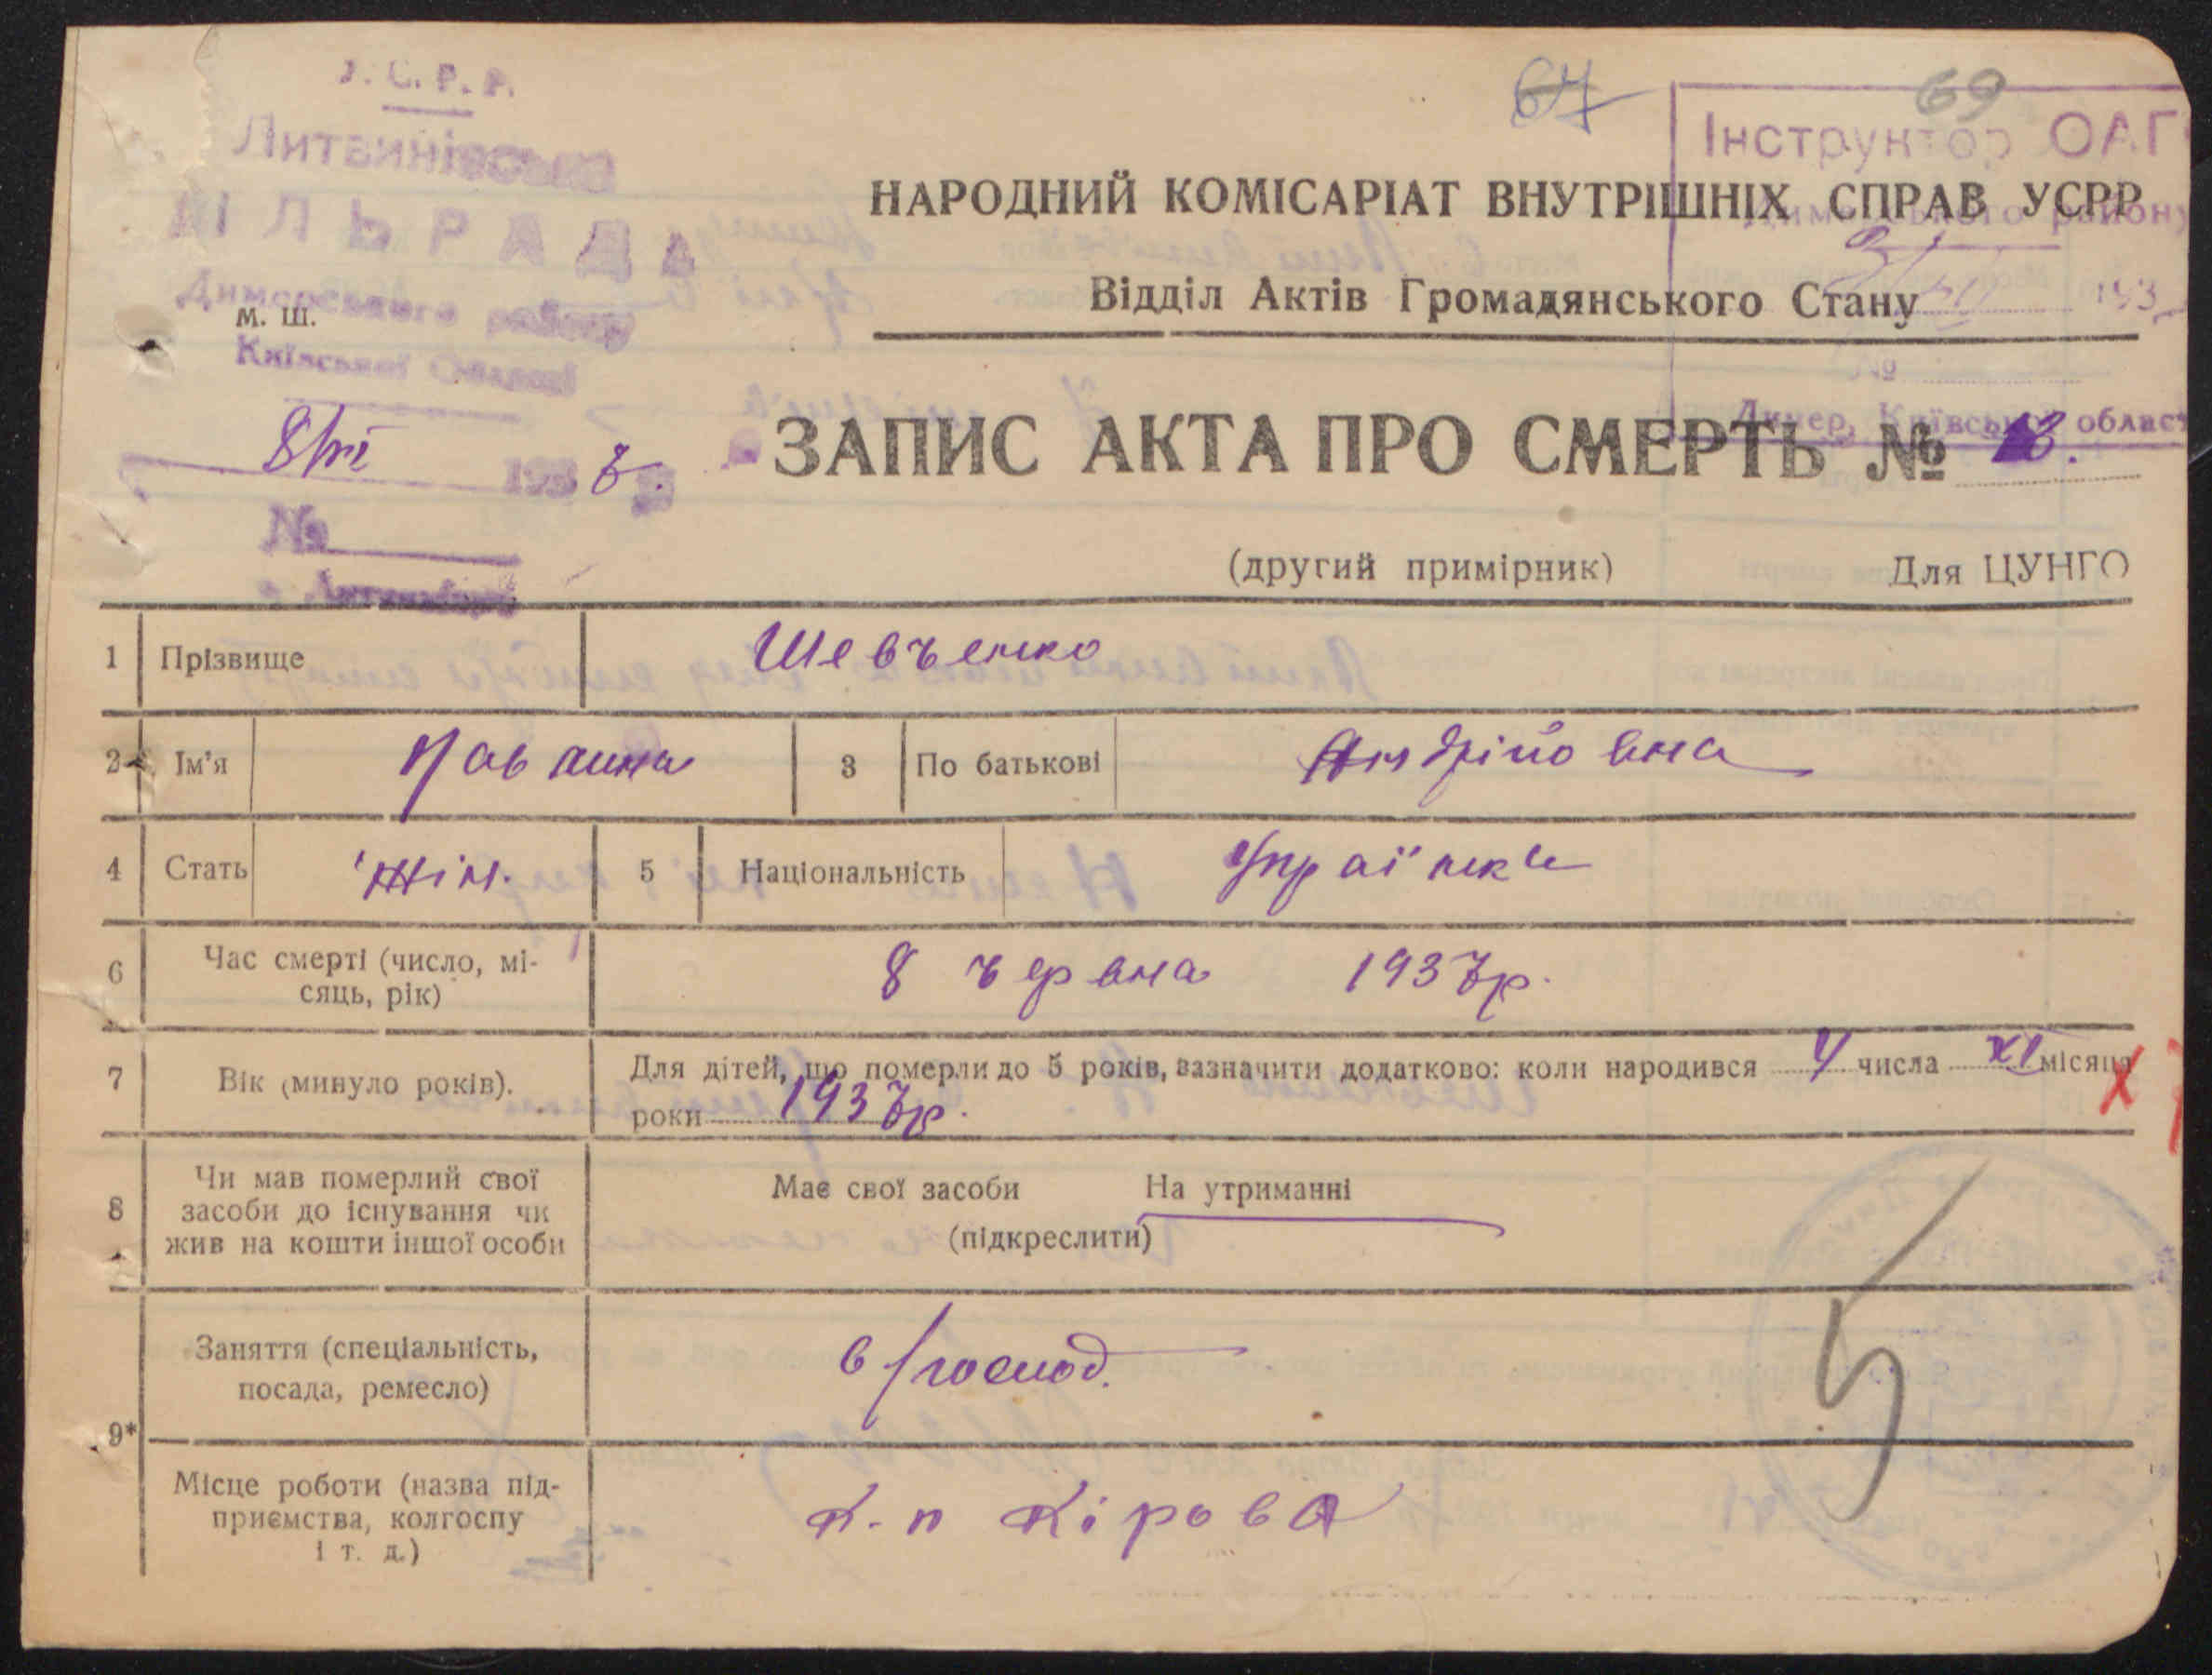 У. С. Р. Р.
Литвинівська
СІЛЬРАДА
Димерського району
м. ш.
Київської Області
8/VI 1937
№
с. Литвинівка
67
69
Інструктор ОАГ
Димерського району
193
№
Димер, Київської област
НАРОДНИЙ КОМІСАРІАТ ВНУТРІШНІХ СПРАВ УСРР
Відділ Актів Громадянського Стану
ЗАПИС АКТА ПРО СМЕРТЬ № 18.
(другий примірник) Для ЦУНГО
1 Прізвище Шевченко
2 Ім'я Павлина 3 По батькові Андрійовна
4 Стать жін. 5 Національність Українка
6 Час смерті (число, мі-
сяць, рік) 8 червна 1937р.
7 Вік (минуло років). Для дітей, що померли до 5 років, зазначити додатково: коли народився 4 числа XI місяця
роки 1937р.
8 Чи мав померлий свої
засоби до існування чи
жив на кошти іншої особи
Має свої засоби На утриманні
(підкреслити)
9*
Заняття (спеціальність,
посада, ремесло) в/господ.
Місце роботи (назва під-
приємства, колгоспу
і т. д.) к-п Кірова
5